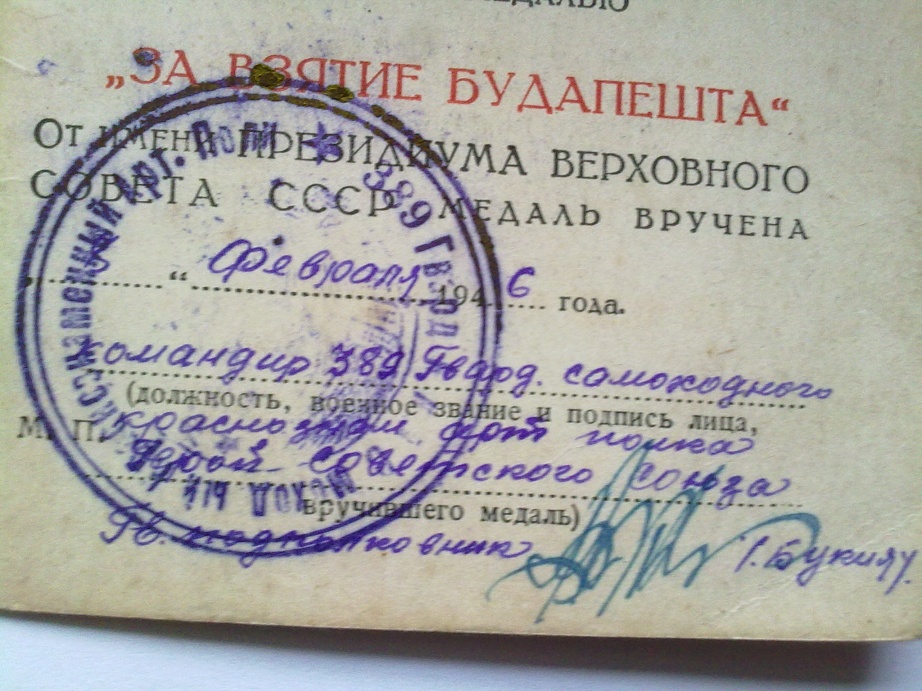 МЕДАЛЬЮ
„ЗА ВЗЯТИЕ БУДАПЕШТА“
От имени ПРЕЗИДИУМА ВЕРХОВНОГО
СОВЕТА СССР МЕДАЛЬ ВРУЧЕНА
“ Февраля 1946 года.
командир 389 Гвард. самоходного
(должность, военное звание и подпись лица,
краснознам арт полка
М. П.
Герой Советского Союза
вручившего медаль)
Гв. подполковник
389 Гв.
Краснознаменный Арт. Полк